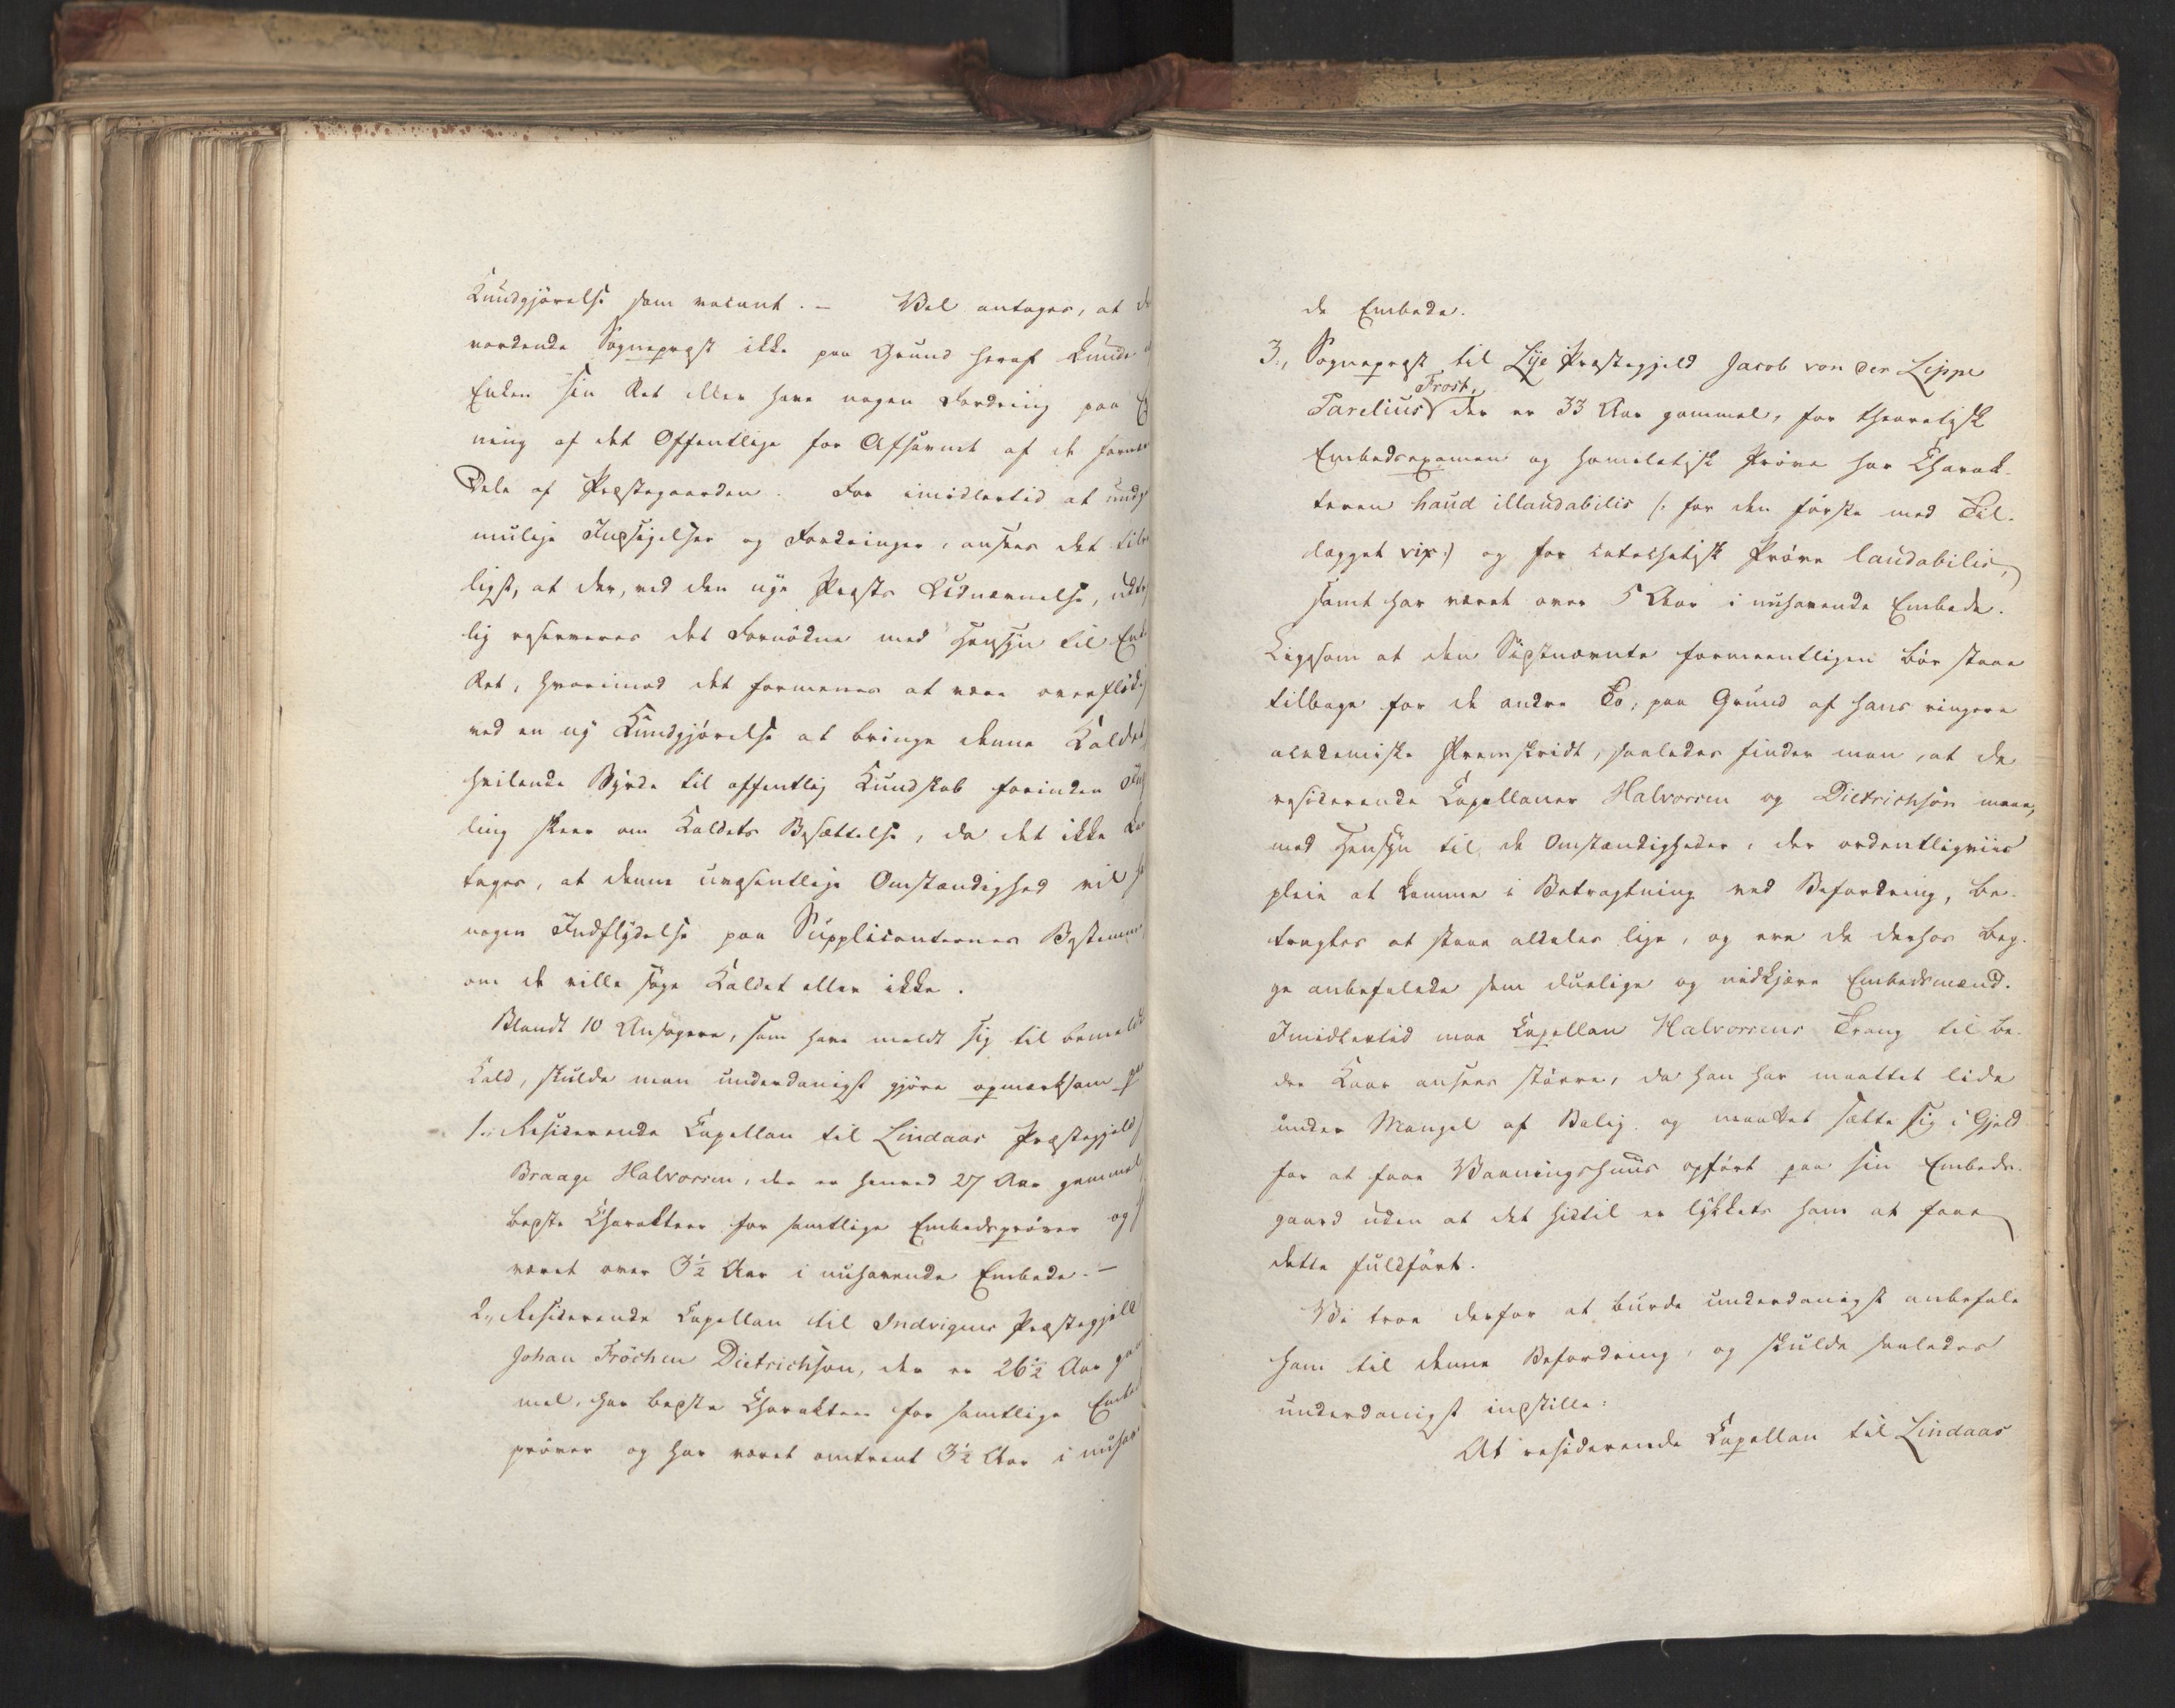 Kundgjørelse som vacant. – Vel antages, at
vordende Sognepræst ikke paa Grund heraf kunde
Enken sin Ret eller have nogen Fordring paa
ning af det Offentlige for Afsavnet af de
Dele af Præstegaarden. For imidlertid at
mulige Indsigelser og Fordringer, ansees det
ligst, at der, ved den nye Præsts Udnævnelse,
lig reserveres det Fornødne med Hensyn til
Ret, hvorimod det formenes at være
ved en ny Kundgjørelse at bringe denne
hvilende Byrde til offentlig Kundskab forinden
ling skeer om Kaldets Besættelse, da det ikke
tages, at denne uvæsentlige Omstændighed vil
nogen Indflydelse paa Supplicanternes
om de ville søge Kaldet eller ikke.
Blandt 10 Ansøgere, som have meldt sig til
Kald, skulde man underdanigst gjøre opmærksom
1., Residerende Capellan til Lindaas Præstegjeld
Braage Halvorsen, der er henved 27 Aar gammel
bedste Charakteer for samtlige Embedsprøver og
været over 3½ Aar i nuhavende Embede. –
2., Residerende Capellan til Indvigens Præstegjeld
Johan Fröchen Dietrichson, der er 26½ Aar
mel, har bedste Charakteer for samtlige
prøver og har været omtrent 3½ Aar i
de Embede.
3., Sognepræst til Lye Præstegjeld Jacob von der Lippe
Frost
Parelius der er 33 Aar gammel, for theoretisk
Embedsexamen og homiletisk Prøve har Charak-
teren haud illaudabilis /: for den første med Til-
lægget vix :/ og for catechetisk Prøve laudabilis,
samt har været over 5 Aar i nuhavende Embede.
Ligesom at den Sidstnævnte formeentligen bør staae
tilbage for de andre To, paa Grund af hans ringere
academiske Fremskridt, saaledes finder man, at de
residerende Capellaner Halvorsen og Dietrichson maae,
med Hensyn til de Omstændigheder, der ordentligviis
pleie at komme i Betragtning ved Befordring, be-
tragtes at staae aldeles lige, og ere de derhos beg-
ge anbefalede som duelige og nidkjære Embedsmænd.
Imidlertid maa Capellan Halvorsens Trang til be-
dre Kaar ansees større, da han har maattet lide
under Mangel af Bolig og maattet sætte sig i Gjeld
for at faae Vaaningshuus opført paa sin Embeds-
gaard uden at det hidtil er lykkets ham at faae
dette fuldført.
Vi troe derfor at burde underdanigst anbefale
ham til denne Befordring, og skulde saaledes
underdanigst indstille:
At residerende Capellan til Lindaas